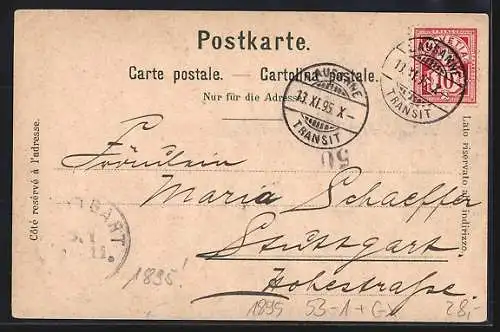 Postkarte.
Carte postale. — Cartolina postale.
Nur für die Adresse.
HELVETIA
10
LAUSANNE
13. XI. 95. X–
TRANSIT
LAUSANNE
13. XI. 95. X–
TRANSIT
50
Côté reservé à l'adresse.
Lato riservato all'indirizzo.
Fräulein
Maria Schaeffer
Stuttgart
Hohestraße.
TGART
1895!
1895 53-1+G 28,-